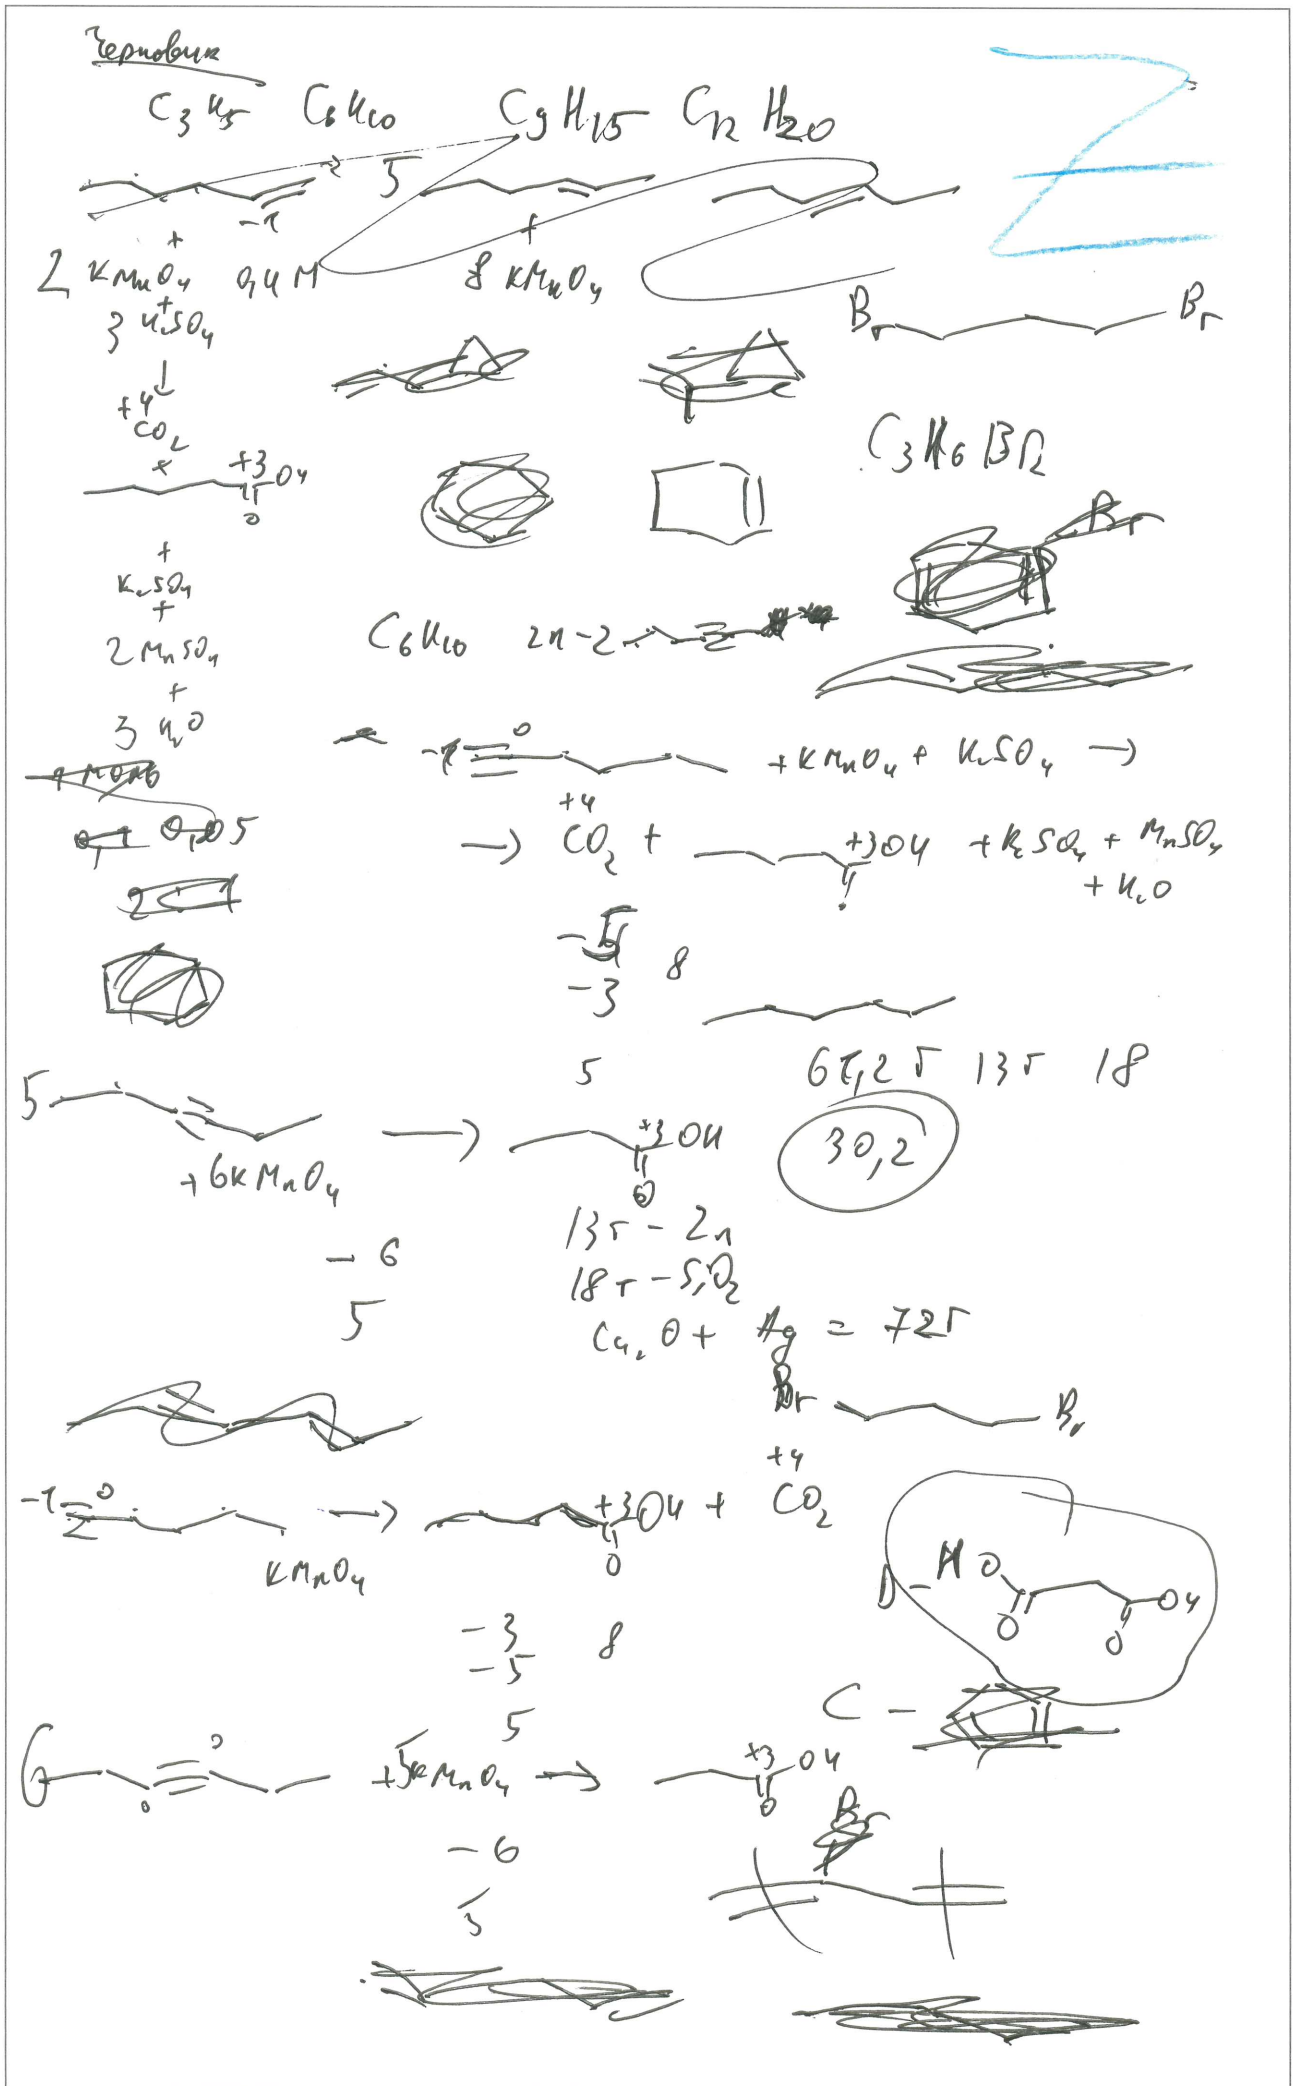 Черновик
C3H5 C6H10 C9H15 C12H20
5
-1
+ +
2 KMnO4 0,4 M 8 KMnO4
+
3 H2SO4
Br Br
↓
+4
CO2
+
+3 OH
O
C3H6Br2
Br
+
K2SO4
+
2 MnSO4
+
3 H2O
C6H10 2n-2
-1 0 + KMnO4 + H2SO4 →
1 моль
0,1 0,05
+4
→ CO2 + +3 OH + K2SO4 + MnSO4
+ H2O
-5
-3 8
5
5 → +3 OH
O
+ 6 KMnO4
67,2 г 13 г 18
30,2
-6
5
13 г - Zn
18 г - SiO2
Cu2O + Ag = 72 г
Br Br
-1 0 → +3 OH + +4 CO2
O
KMnO4
-3 8
-5
5
D - HO OH
O O
C -
6 0 0 + 5 KMnO4 → +3 OH
O
-6
5
Br